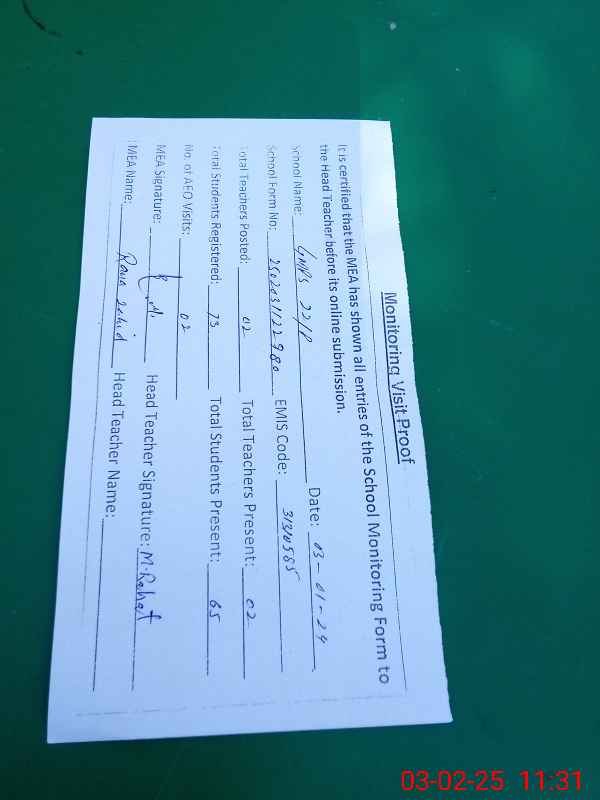 Monitoring Visit Proof
It is certified that the MEA has shown all entries of the School Monitoring Form to
the Head Teacher before its online submission.
School Name: GMPS 22/P Date: 03-01-24
School Form No: EMIS Code: 31310585
Total Teachers Posted: 02 Total Teachers Present: 02
Total Students Registered: 73 Total Students Present: 65
No. of AEO Visits: 02
MEA Signature: Head Teacher Signature: M. Rahat
MEA Name: Rana Zahid Head Teacher Name:
03-02-25 11:31